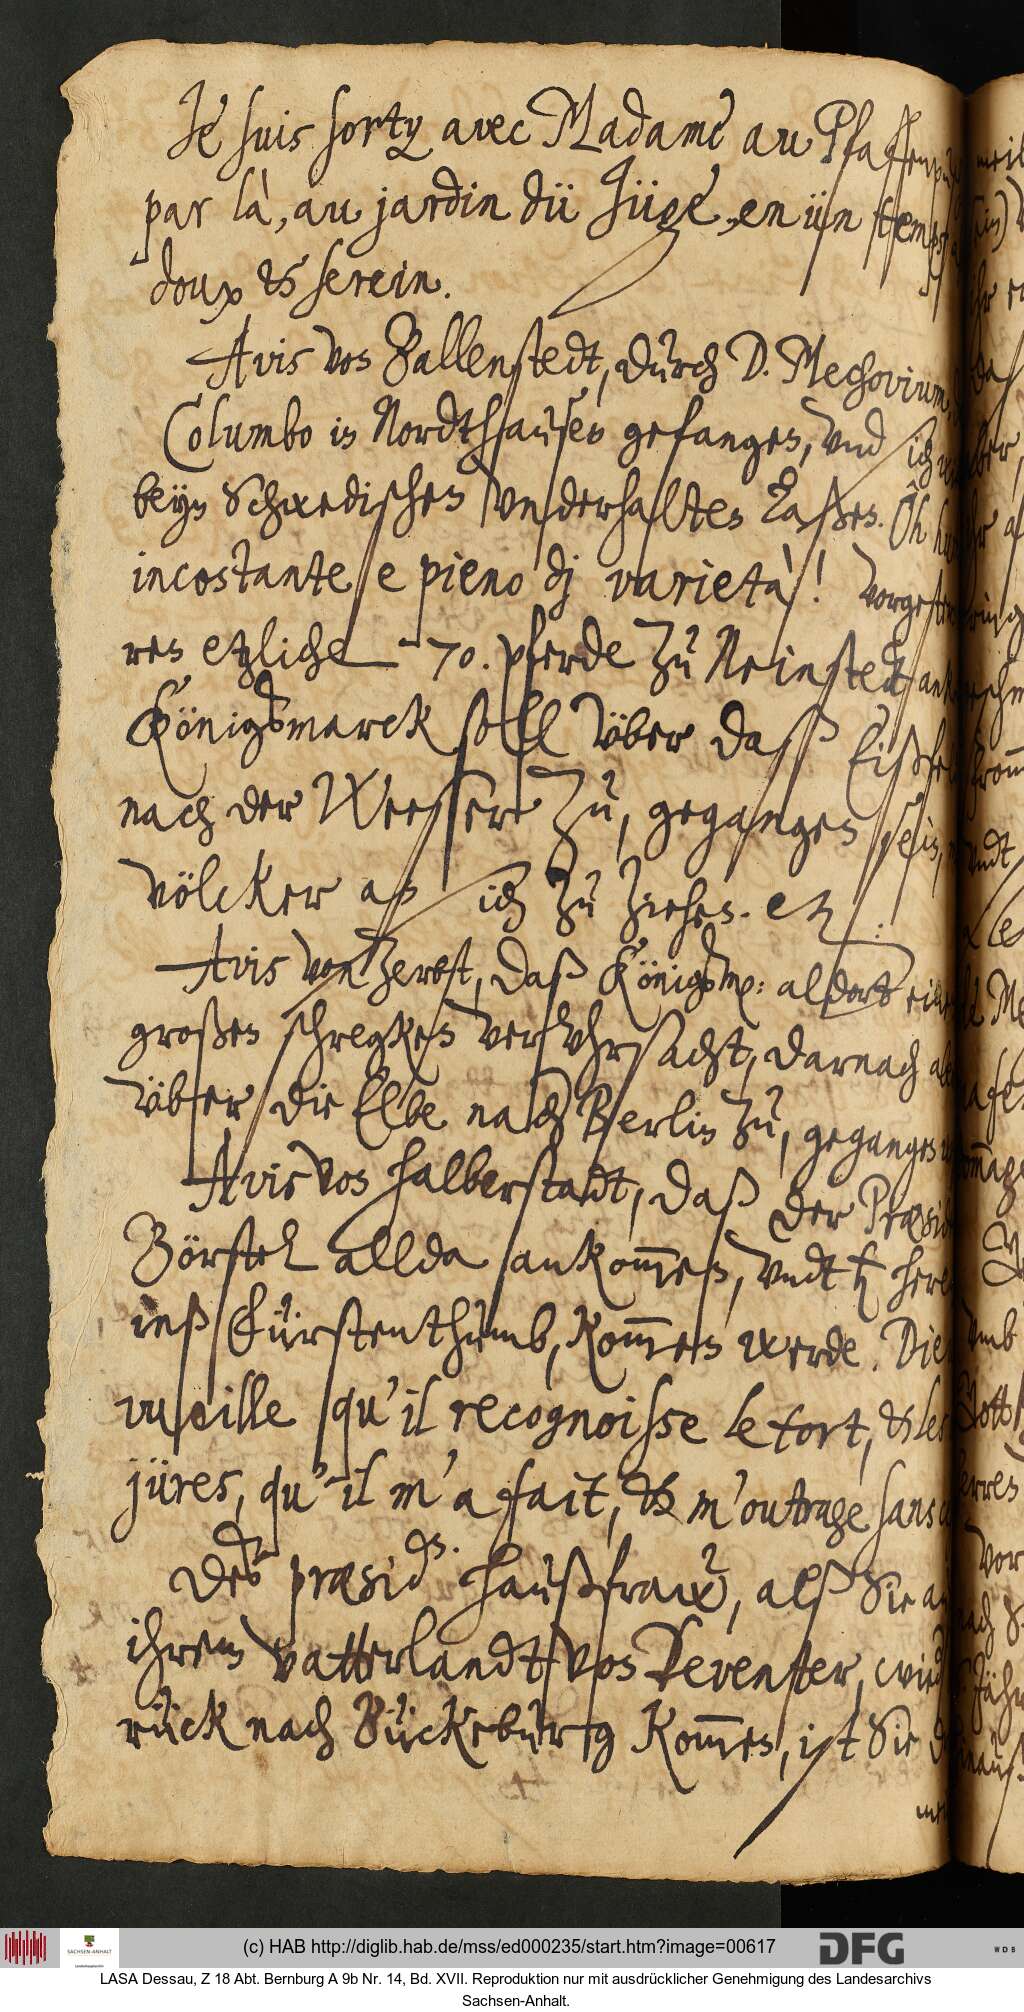 Je suis sorty avec Madame au Pfaffenp
par là, au jardin dü Jüge, en ün temps
doux & serein.
Avis von Ballenstedt, durch D. Mechovium,
Columbo in Nordthausen gefangen, vnd ich
beyn Schwedischen vnderhalten laßen. Oh
incostante e pieno dj varietà! Vorgestern
ren etzliche 70. pferde zu Reinstedt
Königsmarck soll vber daß Eißfel
nach der Weeser zu, gegangen sein,
völcker an sich zu ziehen. etc:
Avis von Zerbst, daß Königsm: aldort ein
großen schregken verVhrsacht, darnach ab
vber die Elbe nach Berlin zu, gegangen
Avis von Halberstadt, daß der Præsid
Börstel allda ankom̅en, vndt
inß Fürstenthumb, kom̅en werde. Die
vueille qu'il recognoisse le tort, & les
jüres, qu'il m'a fait, & m'outrage sans
Des præsid. haußfraw, alß Sie
ihrem vatterlandt von Deventer, wied
rück nach Bückeburg kom̅en, ist Sie
(c) HAB http://diglib.hab.de/mss/ed000235/start.htm?image=00617
DFG
WDB
SACHSEN-ANHALT
LASA Dessau, Z 18 Abt. Bernburg A 9b Nr. 14, Bd. XVII. Reproduktion nur mit ausdrücklicher Genehmigung des Landesarchivs
Sachsen-Anhalt.